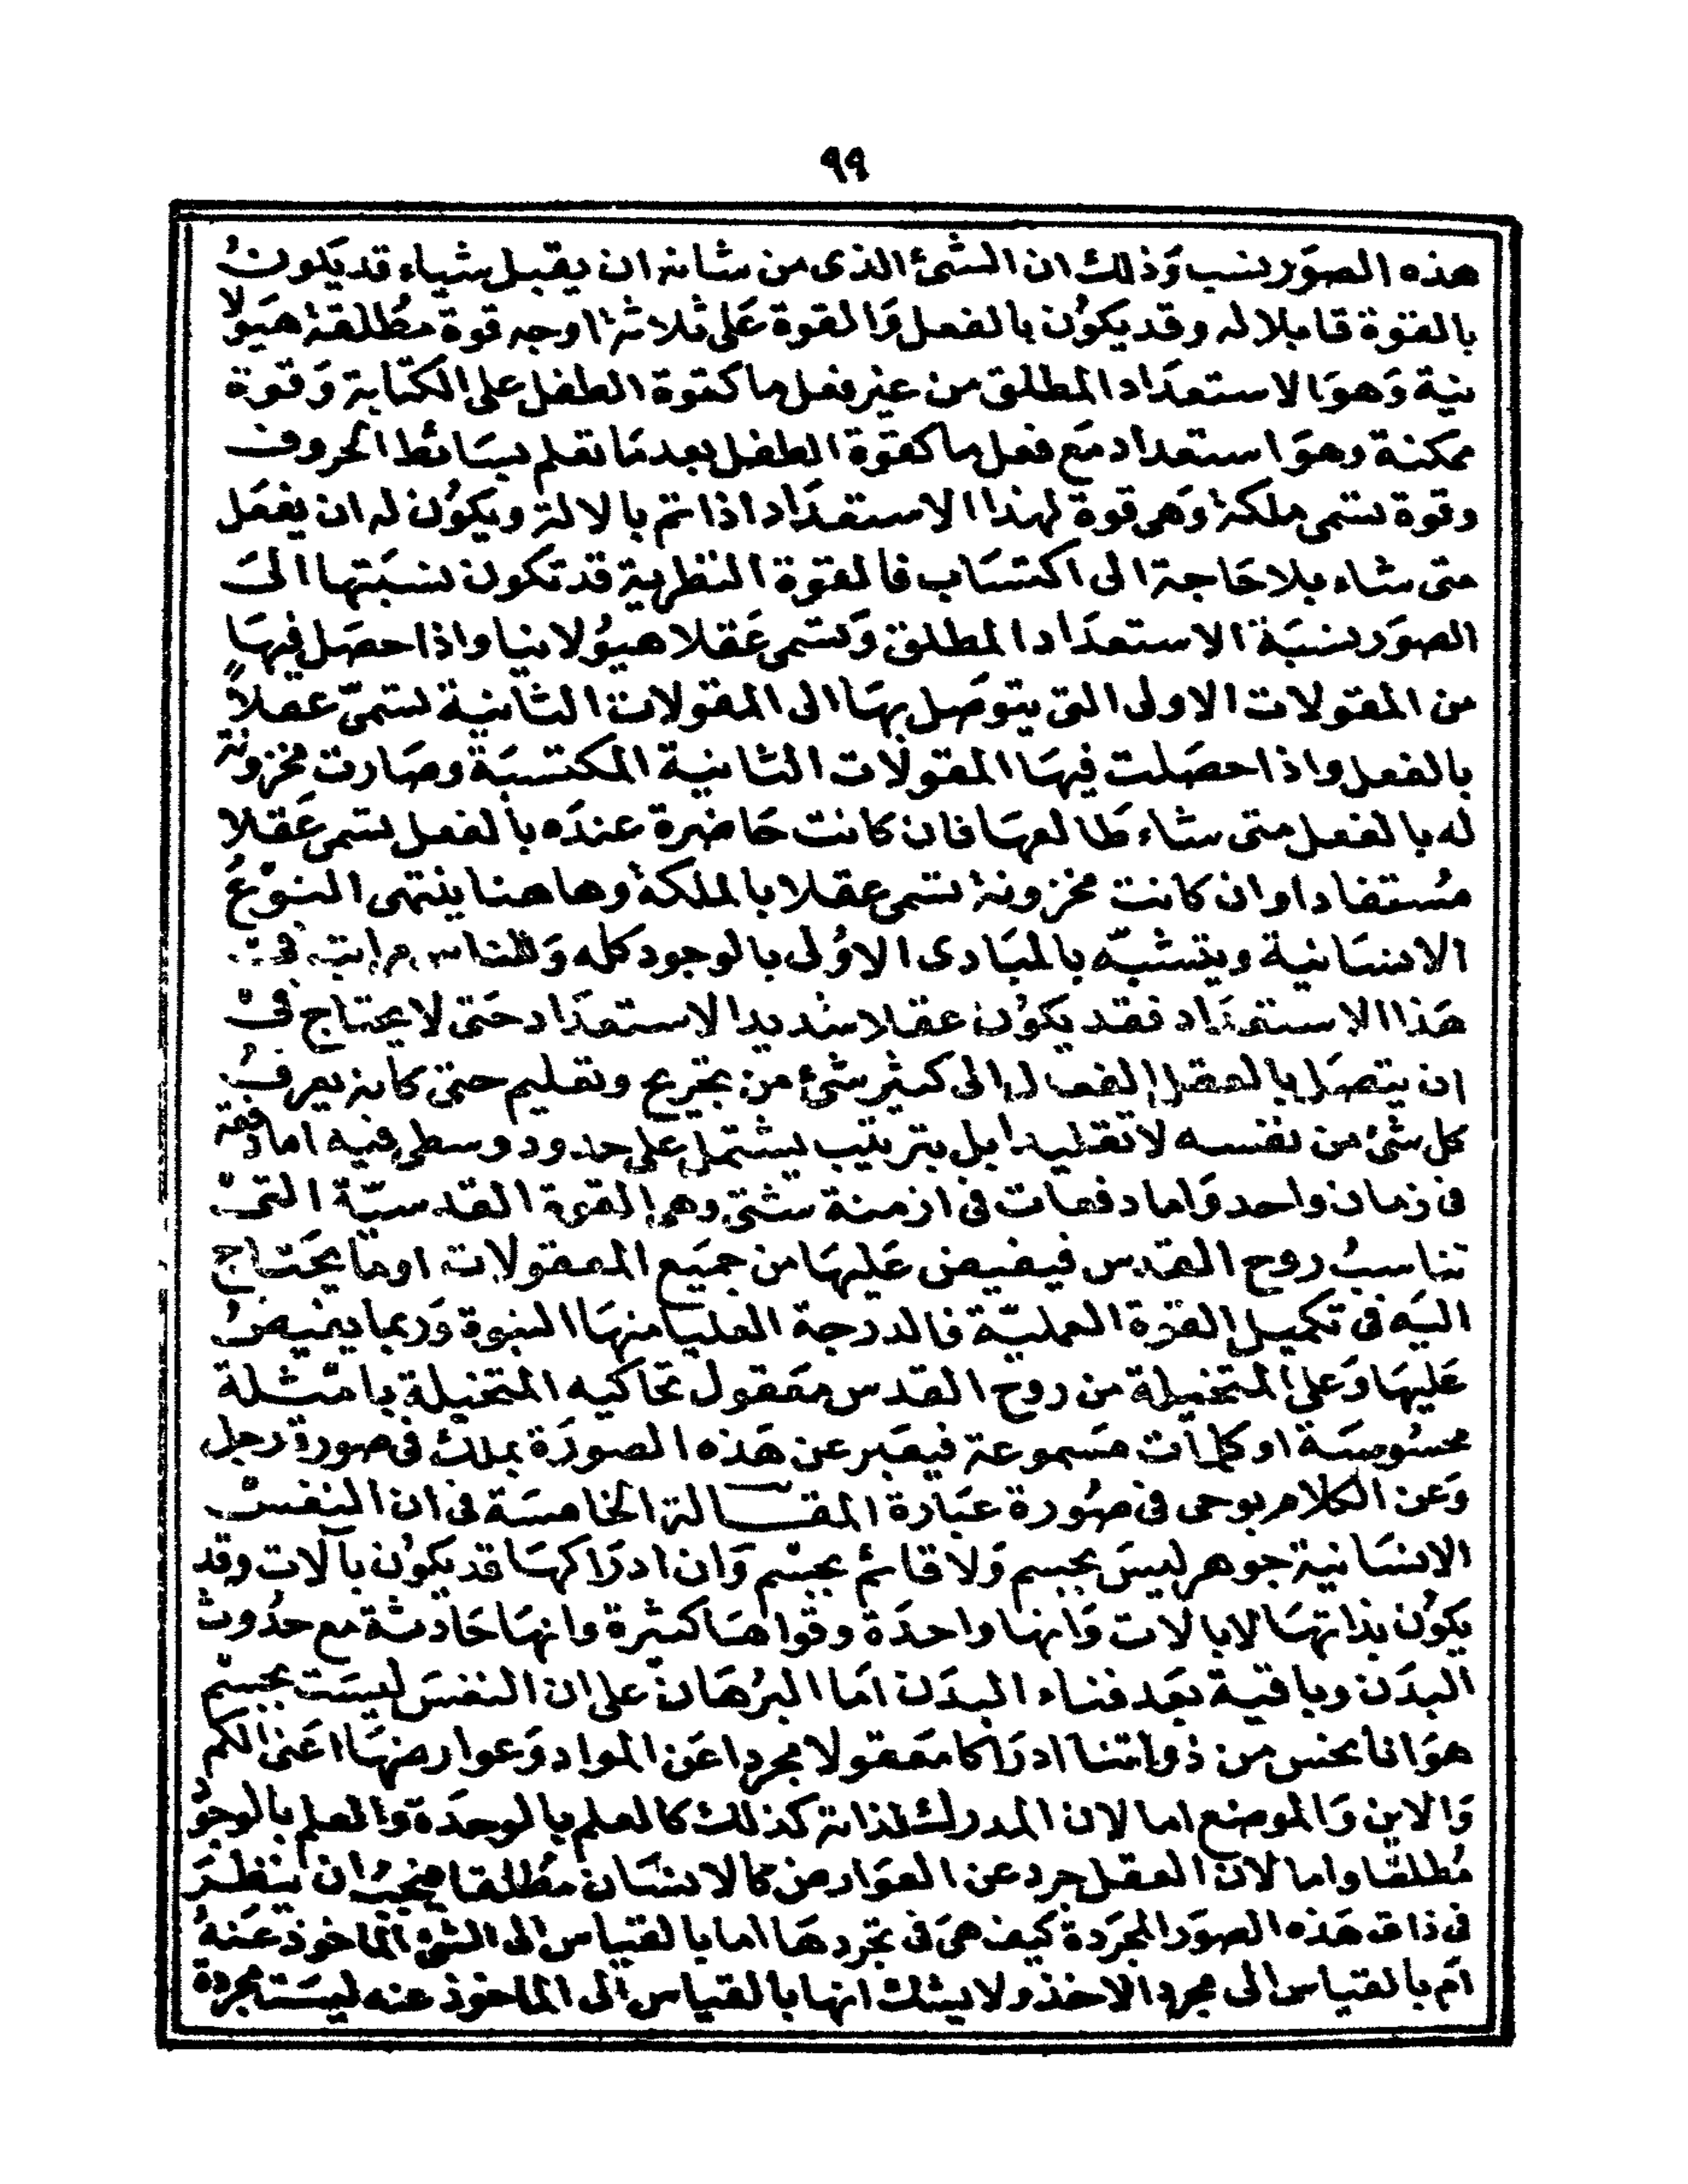 ٩٩
هذه الصوَر نسب وَذلك ان الشئ الذى من شانه ان يقبل شياء قد يكونُ
بالقوة قابلا له وقد يكوُن بالفعل وَالقوة عَلى ثلاثة اوجه قوة مطُلقة هيَولا
نية وَهوَ الاستعدَاد المطلق من غير فعل ما كقوة الطفل على الكتابة وَقوة
ممكنة وهوَ استعداد مَع فعل ما كقوة الطفل بعد مَا تعلم بسَائط الحروف
وقوة تسمى ملكة وَهى قوة لهذا الاستعدَاد اذا تم بالالة ويكوُن له ان يفعَل
متى شاء بلا حَاجة الى اكتسَاب فالقوة النظرية قد تكون نسبَتها الىَ
الصوَر نسبَة الاستعدَاد المطلق وَتسمى عَقلا هيوُلانيا واذا حصَل فيهَا
من المقولات الاولى التى يتوصَل بهَا الى المقولات الثانية تسمىّ عقلاً
بالفعل واذا حصَلت فيهَا المقولات الثانية المكتسبَة وصَارت مخزونة
له بالفعل متى شاء طَالعهَا فان كانت حَاضرة عندَه بالفعل تسمى عَقلا
مُستفادا وان كانت مخزونة تسمى عقلا بالملكة وهاهنا ينتهى النوَعُ
الانسَانية ويتشبّه بالمبَادى الاوُلى بالوجود كله وَللناس مراتب فى
هَذا الاستعدَاد فقد يكوُن عقلا شديد الاستعدَاد حَتى لا يحتاج فى
ان يتصَل بالعقل الفعال الى كثير شئ من تخريج وتعليم حتى كانه يعرفُ
كل شئ من نفسه لا تقليدا بل بترتيب يشتمل على حدود وسطى فيه اما دفعة
فى زمان واحد وَاما دفعات فى ازمنة شتى وهى القوة القدسيّة التى
تناسبُ روح القدس فيفيض عَليهَا من جميَع المعقولات او مَا يحَتاج
اليَه فى تكميل القوة العمليّة فالدرجة العليا منهَا النبوة وَربما يفيض
عَليهَا وَعلى المتخيلة من روح القدس معَقول تحاكيه المتخيلة بامثلة
محسُوسَة او كلمات مَسموعة فيعَبر عن هَذه الصورَة بملك فى صورة رجل
وَعن الكلام بوحى فى صُورة عبَارة المقـــالة الخامسَة فى ان النفس
الانسَانية جوهر ليسَ بجسم وَلا قائم بجسم وَان ادرَاكهَا قد يكوُن بآلات وقد
يكوُن بذاتهَا لا بالات وَانها واحدَة وقواهَا كثيرة وانهَا حَادثة مع حدُوث
البدَن وباقية بعَد فناء البدَن اَما البرُهَان على ان النفسَ ليسَت بجسم
هوَ انا نحس من ذواتنا ادرَاكا معَقولا مجردا عَن المواد وَعوارضهَا اعَنى الكم
وَالاين وَالموضع اما لان المدرك لذاته كذلك كالعلم بالوحدَة والعلم بالوجوُد
مُطلقا واما لان العقل جرد عن العوَارض كالانسَان مطُلقا فيجبُ ان ينظرَ
فى ذات هَذه الصوَر المجرَدة كيف هىَ فى تجردهَا اما بالقياس الى الشئ الماخوذ عَنهُ
اَم بالقياس الى مجرد الاخذ ولا يشك انها بالقياس الى الماخوذ عنه ليسَت مجردة